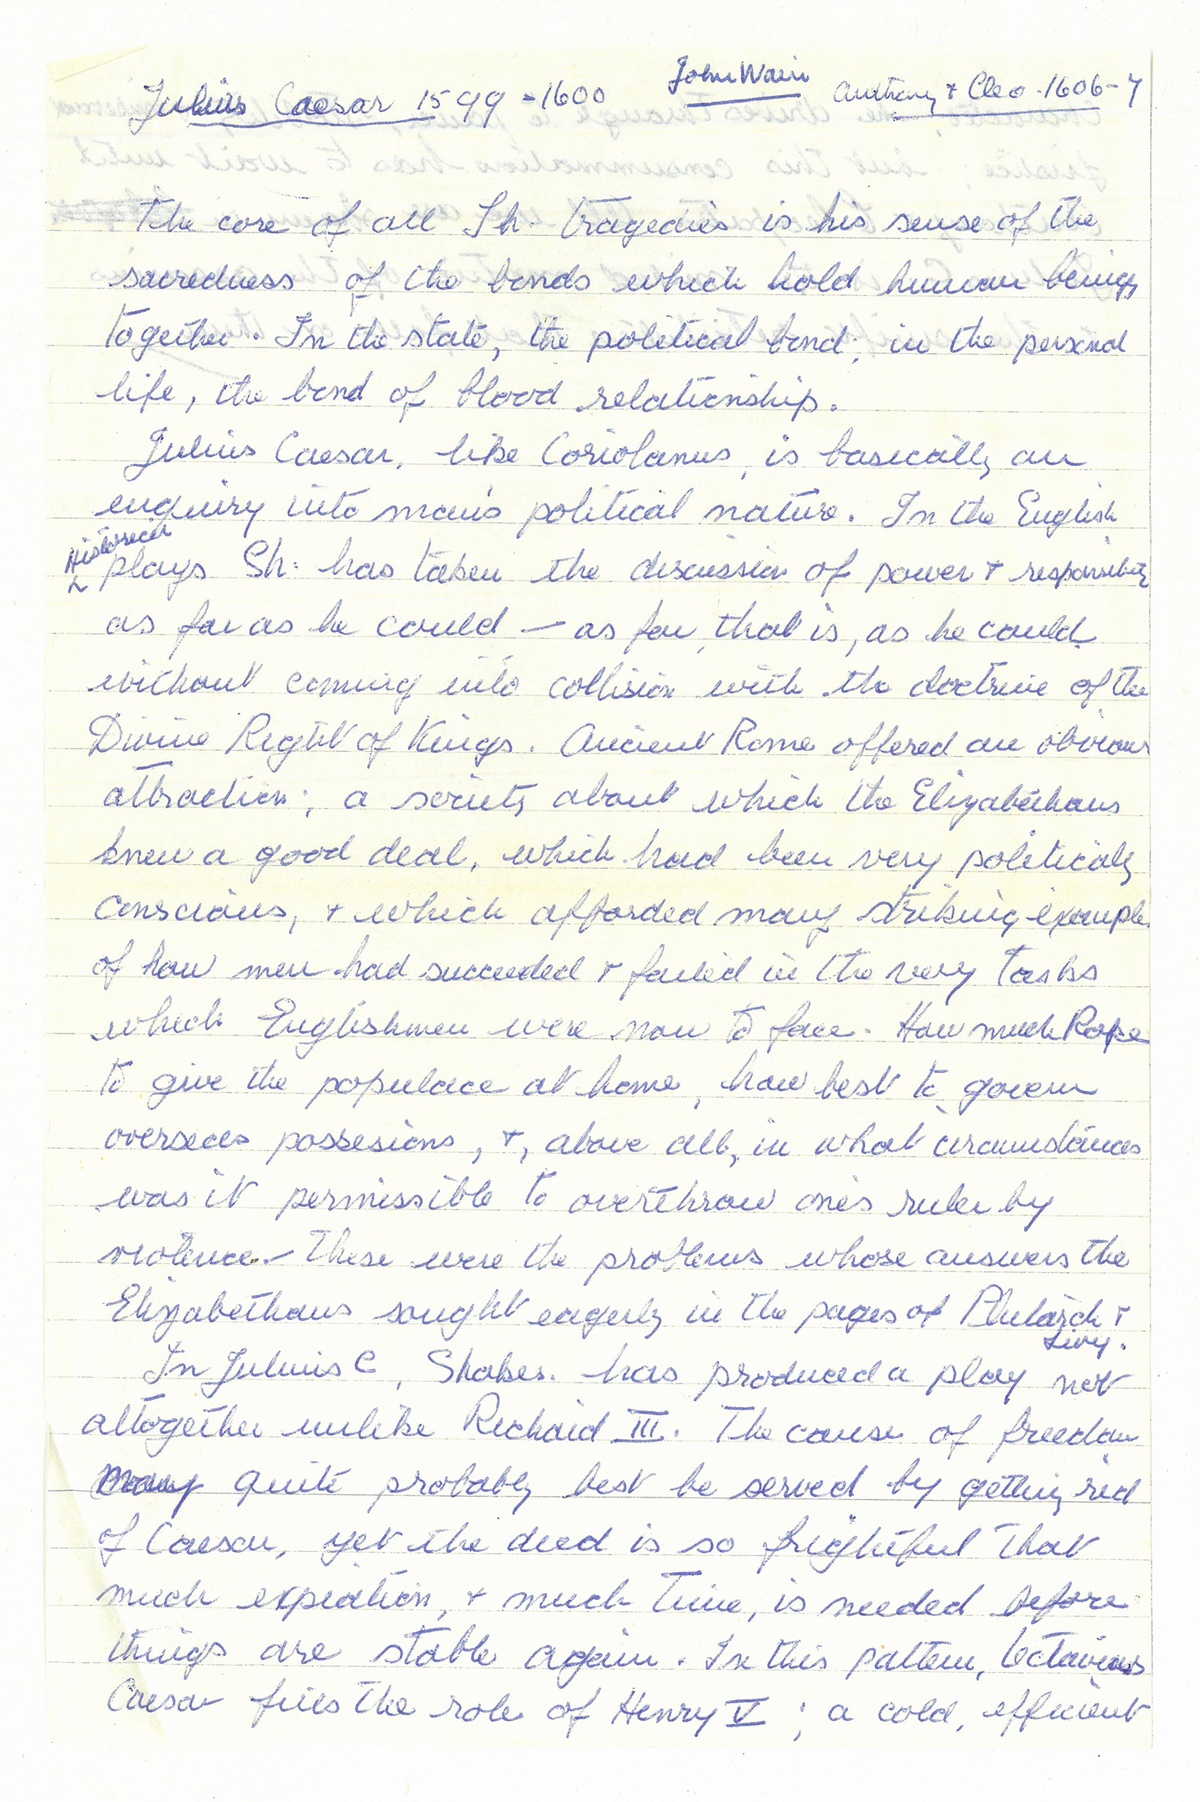 Julius Caesar 1599-1600 John Wain Anthony + Cleo-1606-7
The core of all Sh. tragedies is his sense of the
sacredness of the bonds which hold human beings
together. In the state, the political bond; in the personal
life, the bond of blood relationship.
Julius Caesar, like Coriolanus, is basically an
enquiry into man's political nature. In the English
Historical
plays Sh. has taken the discussion of power + responsibility
as far as he could – as far, that is, as he could
without coming into collision with the doctrine of the
Divine Right of Kings. Ancient Rome offered an obvious
attraction; a society about which the Elizabethans
knew a good deal, which had been very politically
conscious, + which afforded many striking example
of how men had succeeded + failed in the very tasks
which Englishmen were now to face. How much Rope
to give the populace at home, how best to govern
overseas possesions, +, above all, in what circumstances
was it permissible to overthrow one's ruler by
violence – These were the problems whose answers the
Elizabethans sought eagerly in the pages of Plutarch +
Livy.
In Julius C, Shakes. has produced a play not
altogether unlike Richard III. The cause of freedom
may quite probably best be served by getting rid
of Caesar, yet the deed is so frightful that
much expiation, + much time, is needed before
things are stable again. In this pattern, Octavious
Caesar fills the role of Henry V; a cold, efficient